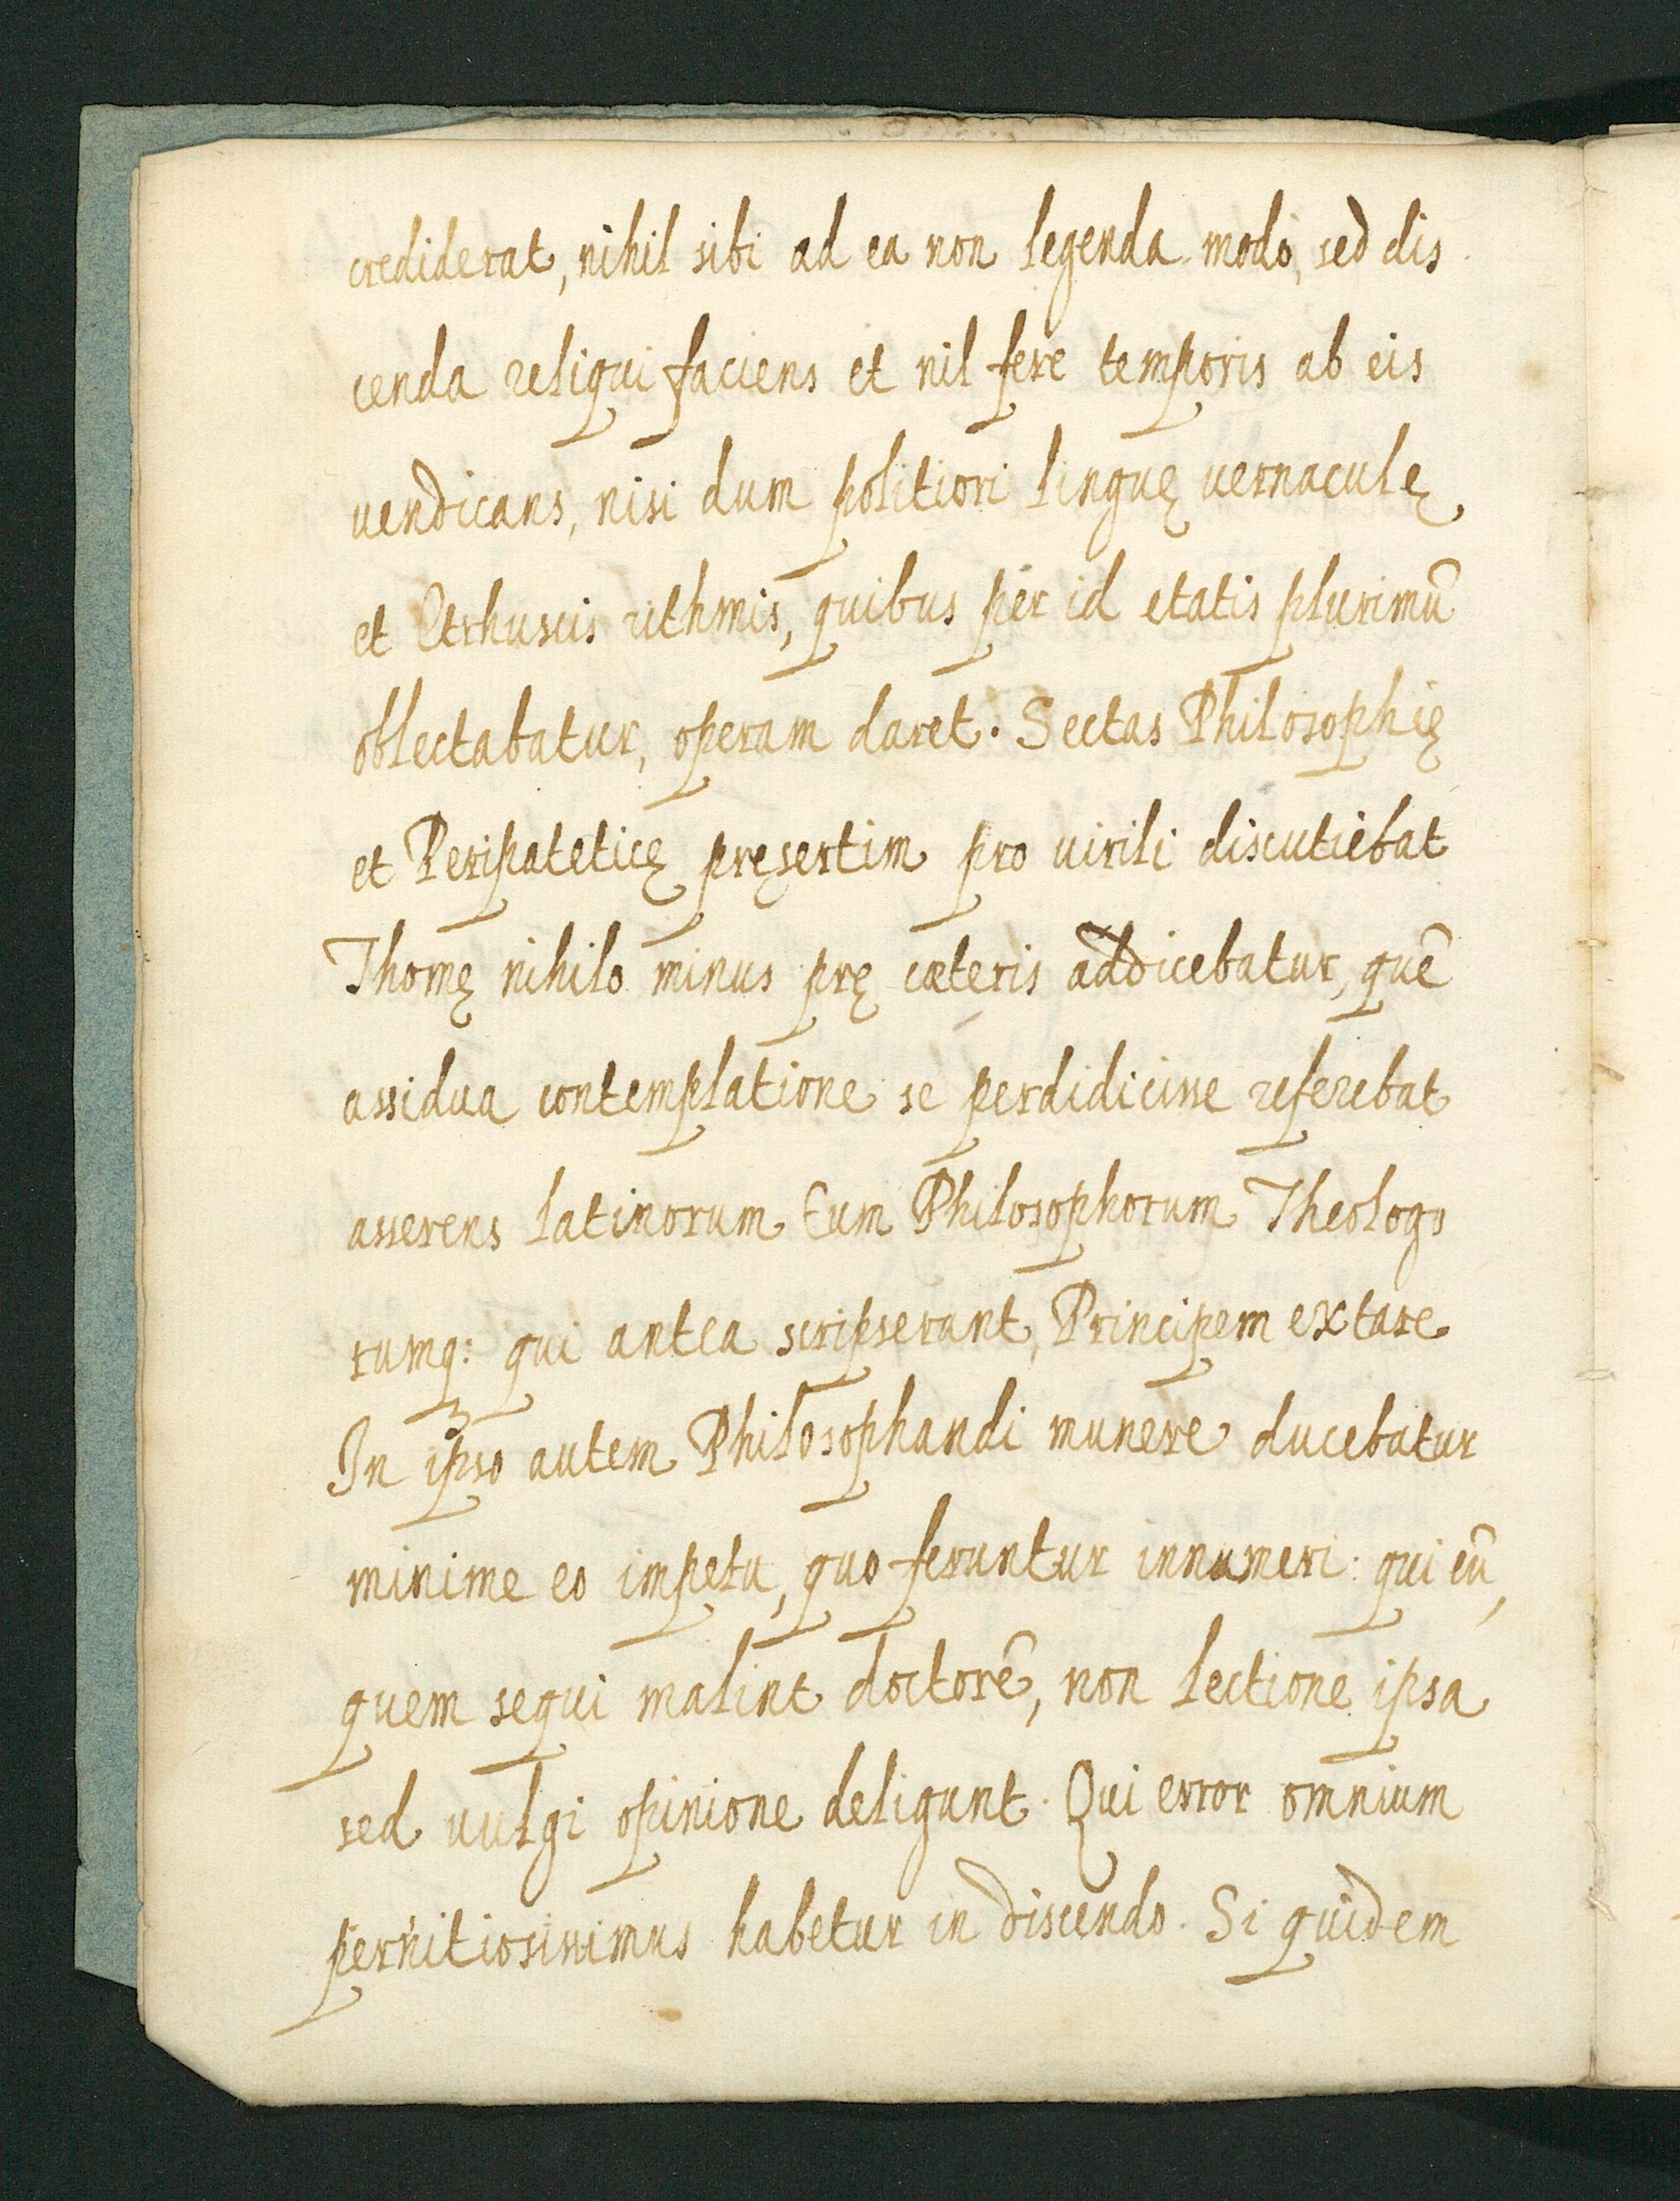 crediderat, nihil sibi ad ea non legenda modò, sed dis
cenda reliqui faciens et nil fere temporis ab eis
uendicans, nisi dum politiori linguę uernaculę
et Etrhuscis rithmis, quibus per id etatis plurimũ
oblectabatur, operam daret. Sectas Philosophię
et Peripateticę pręsertim pro uirili discutiebat
Thomę nihilo minus prę cæteris addicebatur, quẽ
assidua contemplatione se perdidicisse referebat
asserens latinorum Eum Philosophorum Theologo
rumq: qui antea scripserant, Principem extare
In ipso autem Philosophandi munere ducebatur
minime eo impetu, quo feruntur innumeri: qui eũ,
quem sequi malint doctorẽ, non lectione ipsa
sed uulgi opinione deligunt. Qui error omnium
pernitiosissimus habetur in discendo. Si quidem